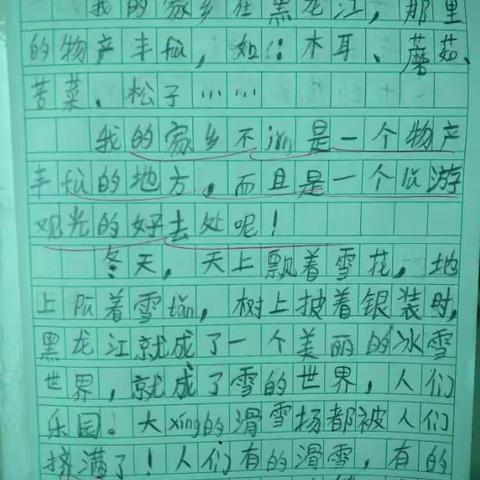 我的家乡在黑龙江，那里
的物产丰fù，如：木耳、蘑菇、
苦菜、松子……
我的家乡不jǐn是一个物产
丰fù的地方，而且是一个lǚ游
观光的好去处呢！
冬天，天上飘着雪花，地
上pū着雪tǎn，树上披着银装时，
黑龙江就成了一个美丽的冰雪
世界，就成了雪的世界，人们
乐园。大xíng的滑雪场都被人们
挤满了！人们有的滑雪，有的